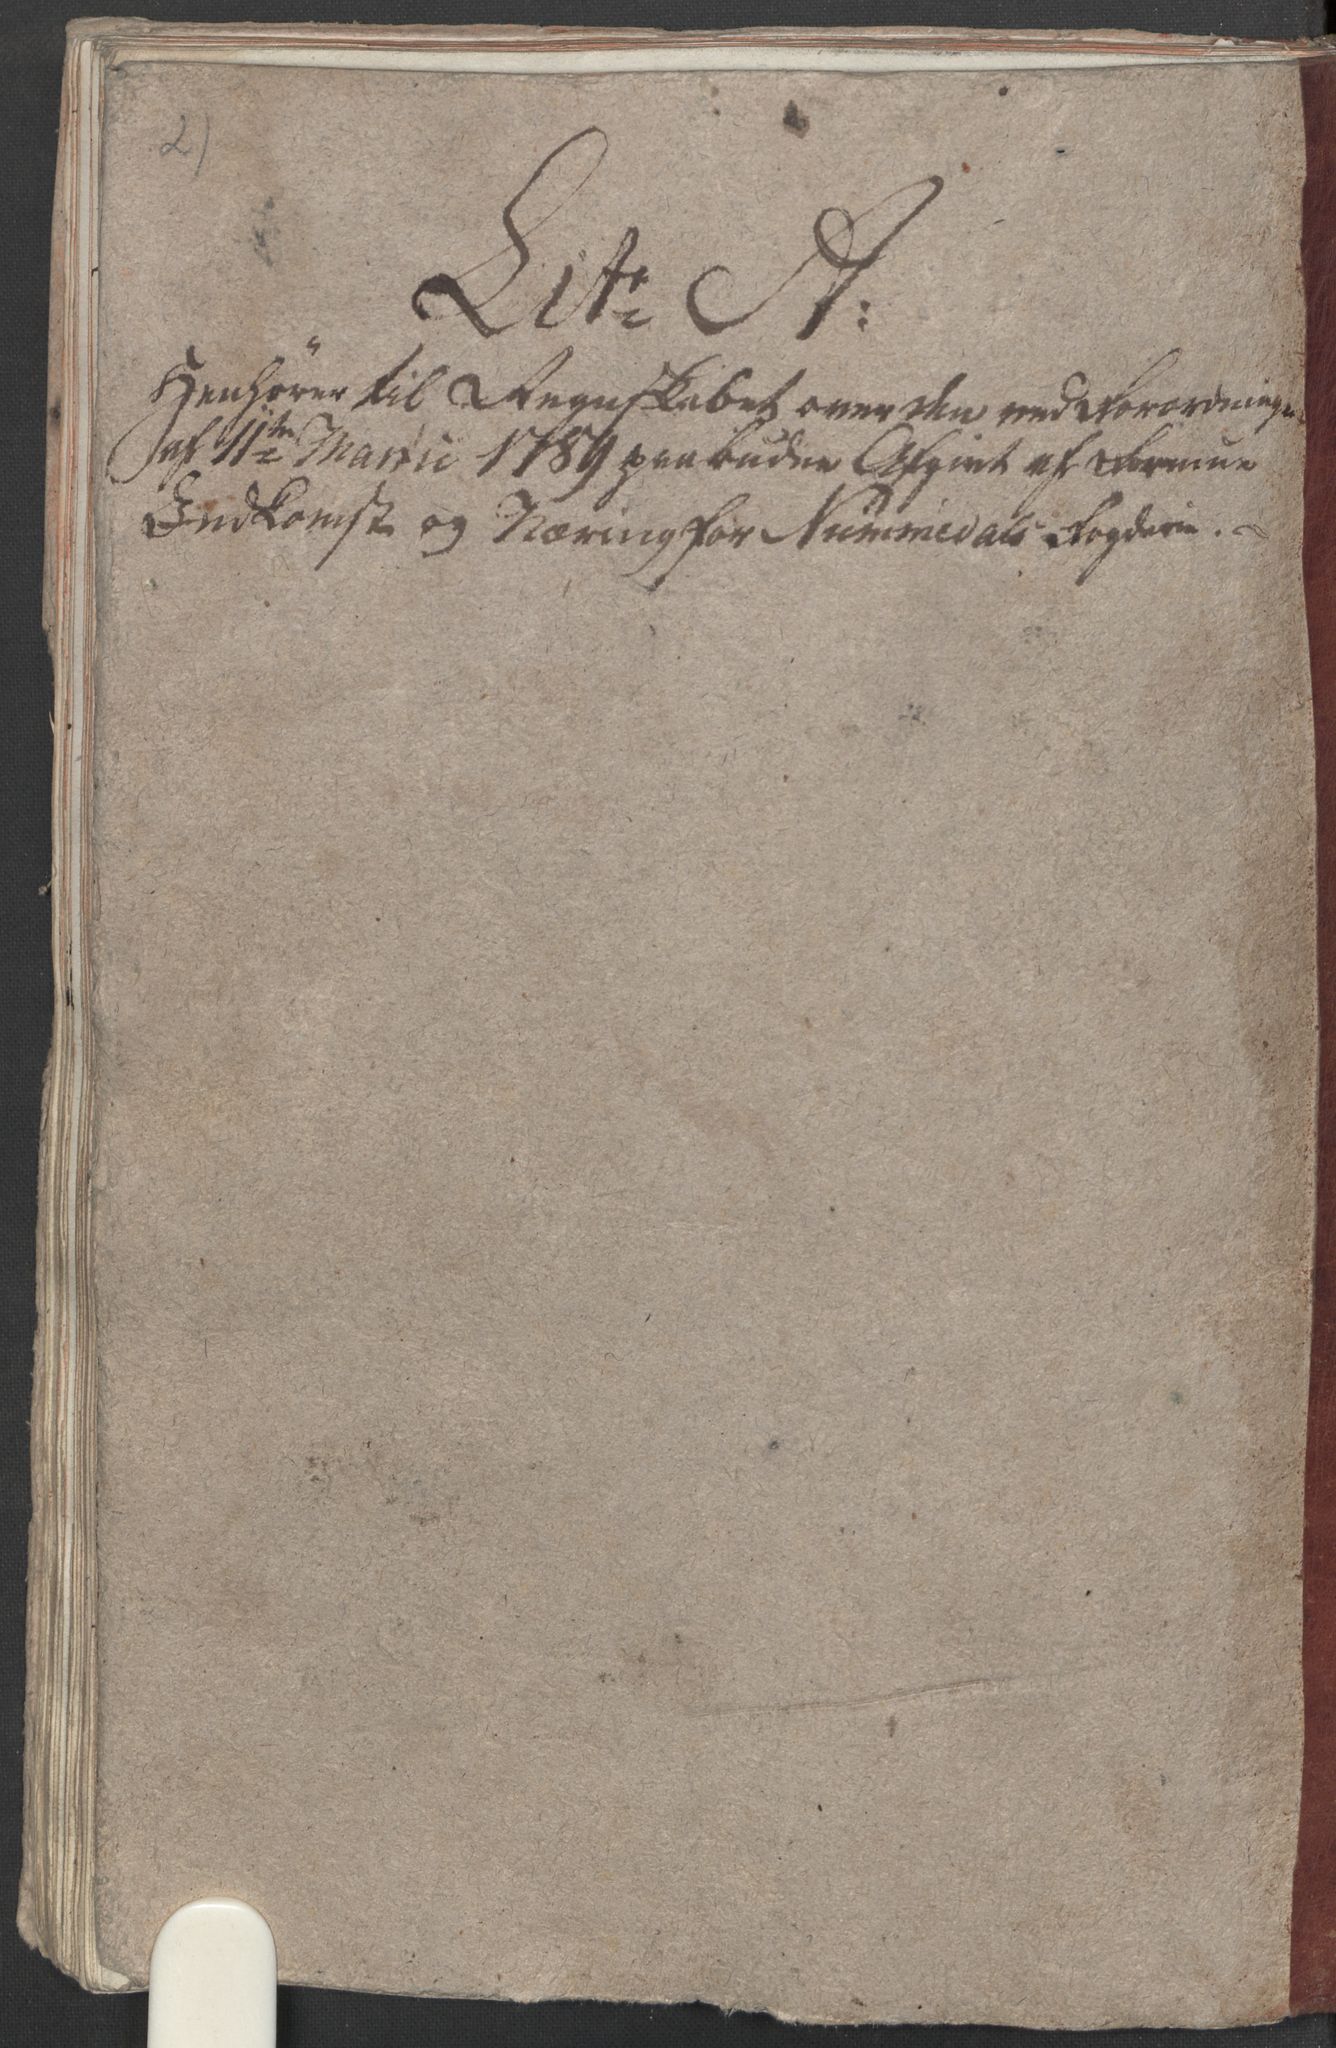 2)
Litr A:
Henhörer til Regnskabet over den ved Forordningen
af 11te Martii 1789 paabudne Afgivt af Formue
Indkomst og Næring for Nummedals Fogderie.